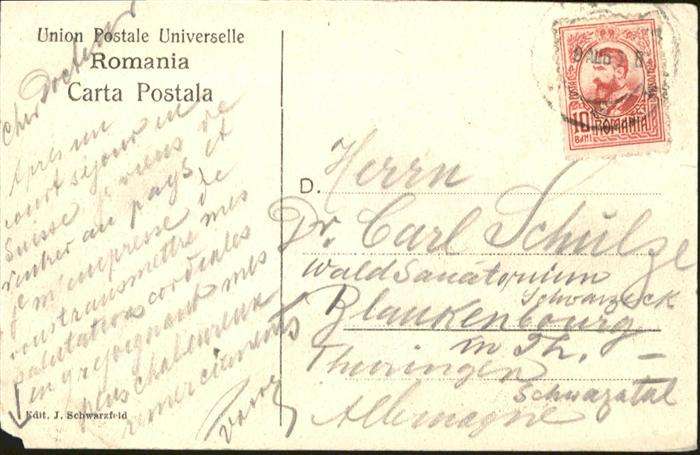 Union Postale Universelle
Romania
Carta Postala
Cher Docteur
Après un
court séjour en
Suisse je viens de
rentrer au pays et
je m'empresse de
vous transmettre mes
salutations cordiales
en y joignant mes
plus chaleureux
remerciements
Edit. J. Schwarzfeld
10 ROMANIA
BANI
D. Herrn
Dr. Carl Schulze
Waldsanatorium
Schwarzeck
Blankenbourg
in Th. –
Thüringen
Schwazatal
Allemagne